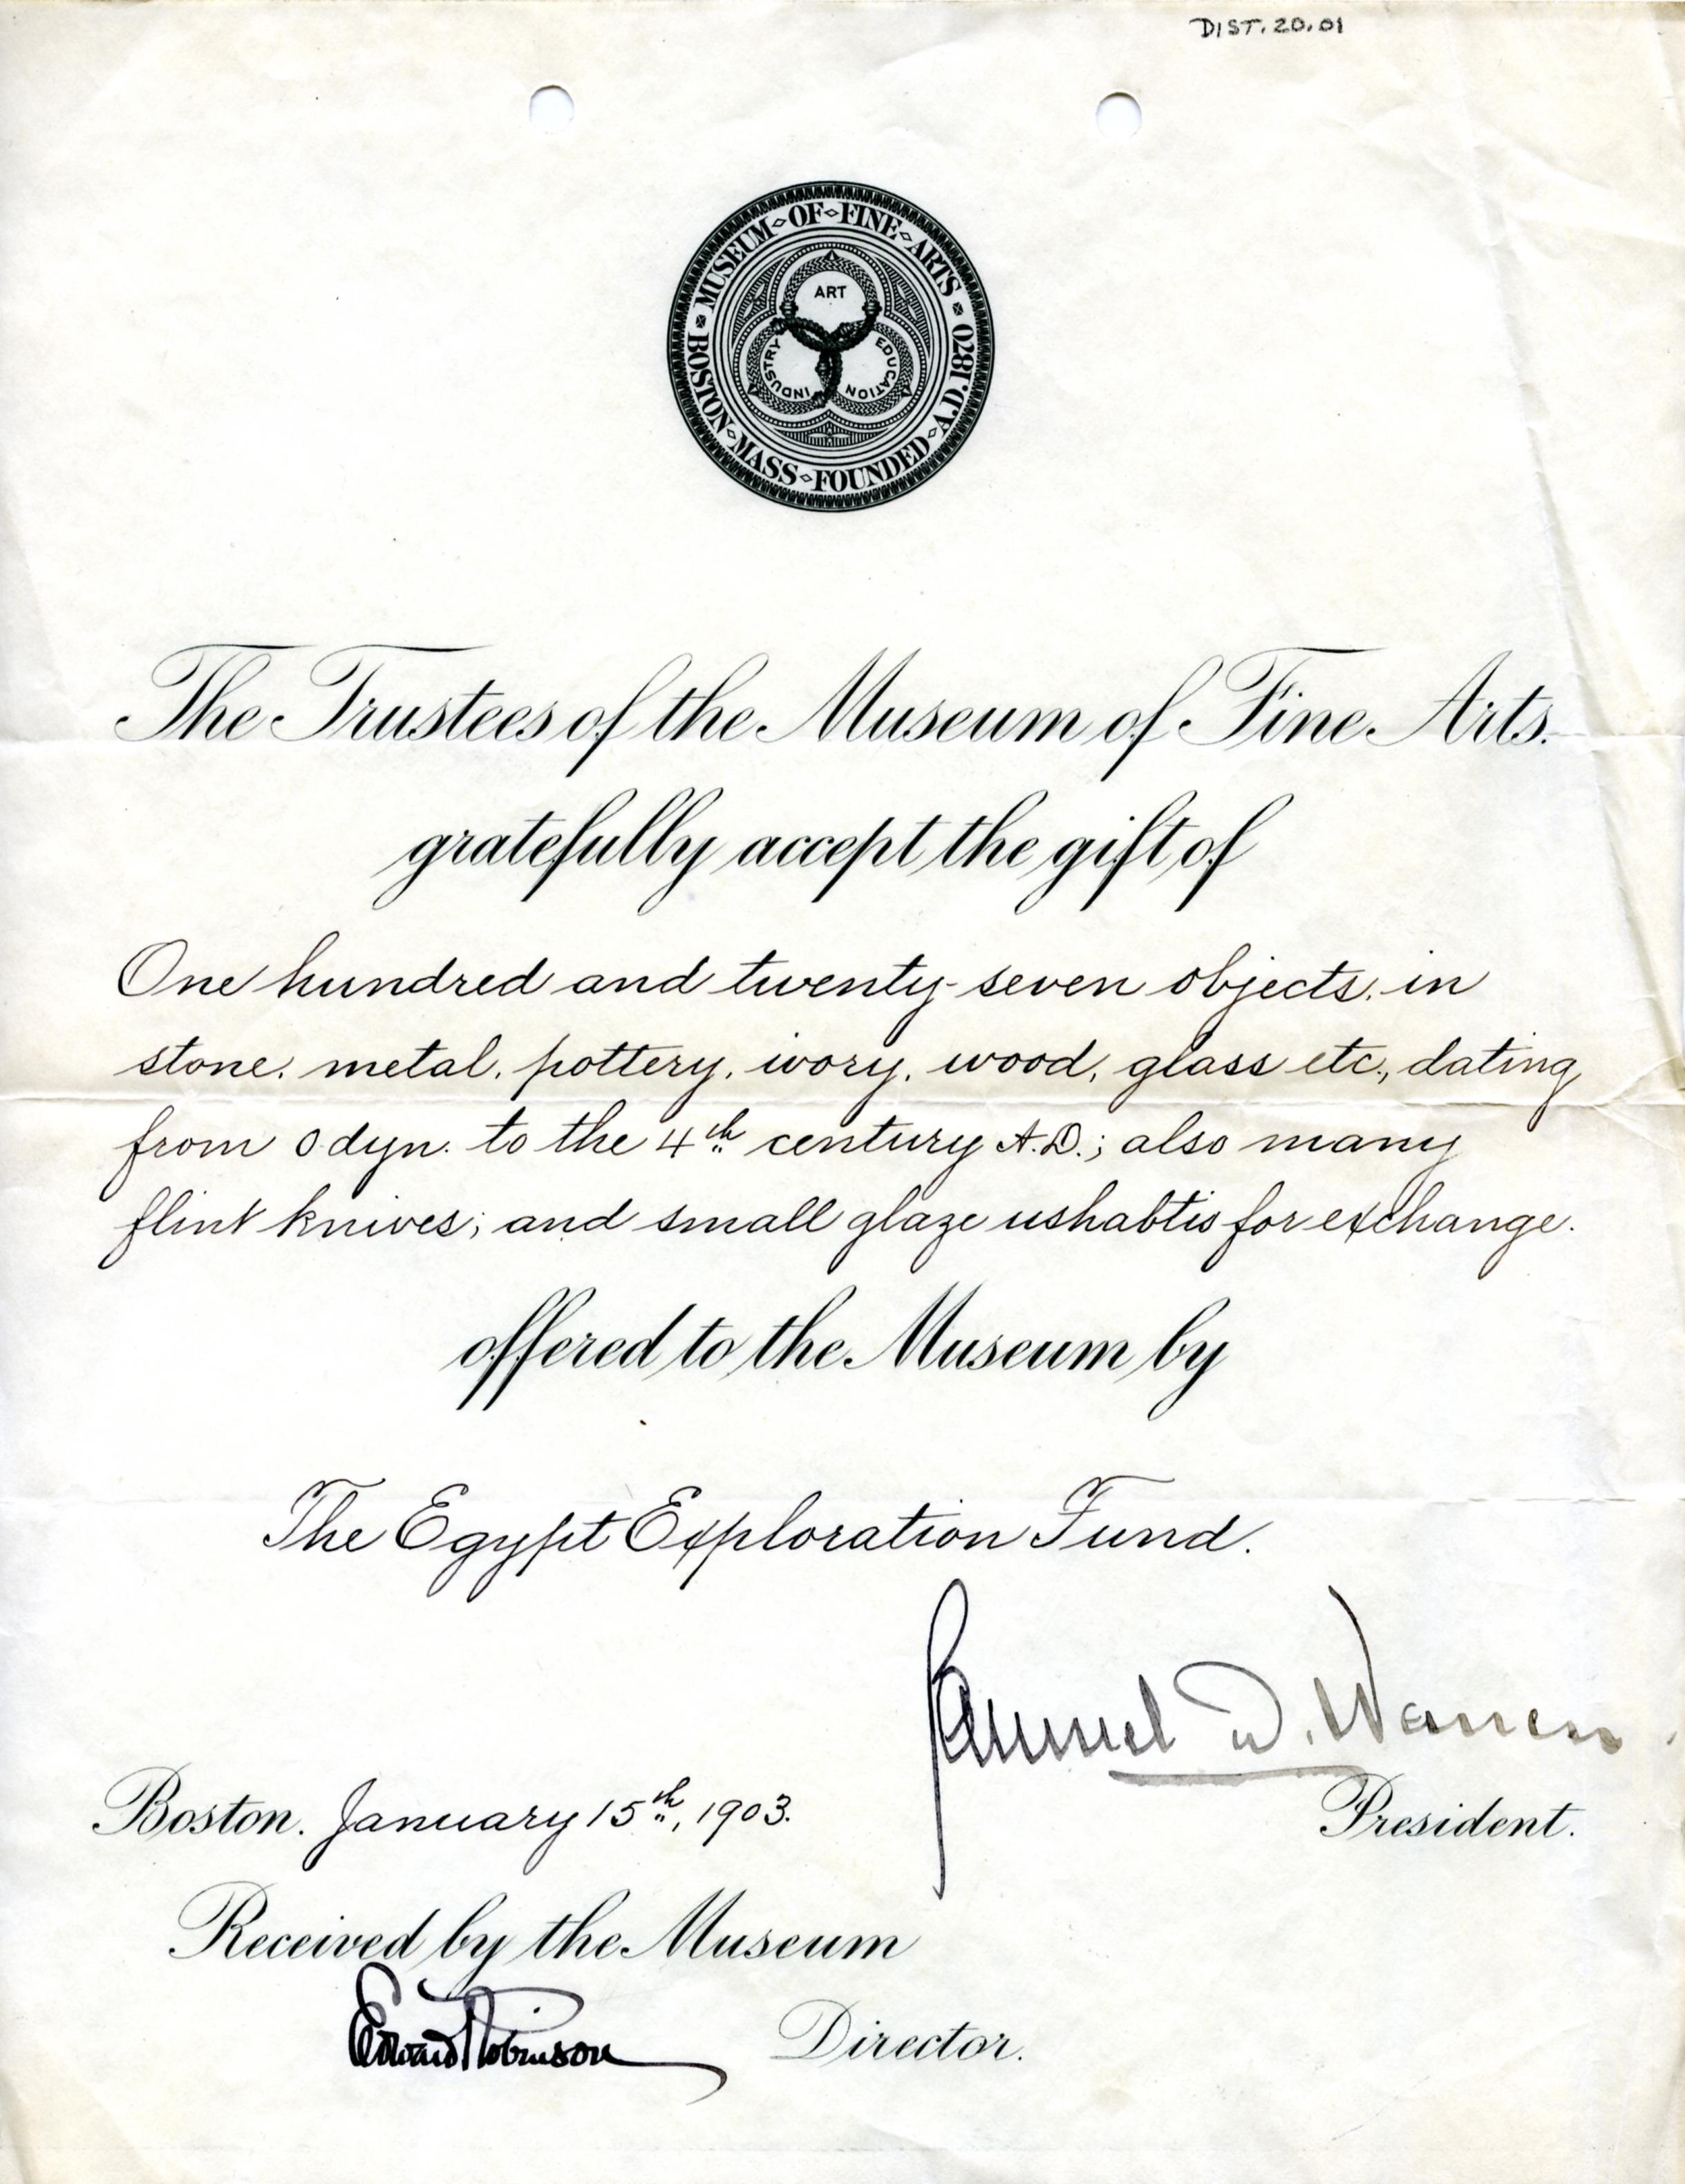 DIST. 20.01
MUSEUM OF FINE ARTS
BOSTON MASS FOUNDED A.D. 1870
ART
INDUSTRY
EDUCATION
The Trustees of the Museum of Fine Arts.
gratefully accept the gift of
One hundred and twenty-seven objects, in
stone, metal, pottery, ivory, wood, glass etc., dating
from 0 dyn. to the 4th century A.D.; also many
flint knives; and small glaze ushabtis for exchange.
offered to the Museum by
The Egypt Exploration Fund.
Samuel D. Warren
President.
Boston. January 15th, 1903.
Received by the Museum
Edward Robinson Director.